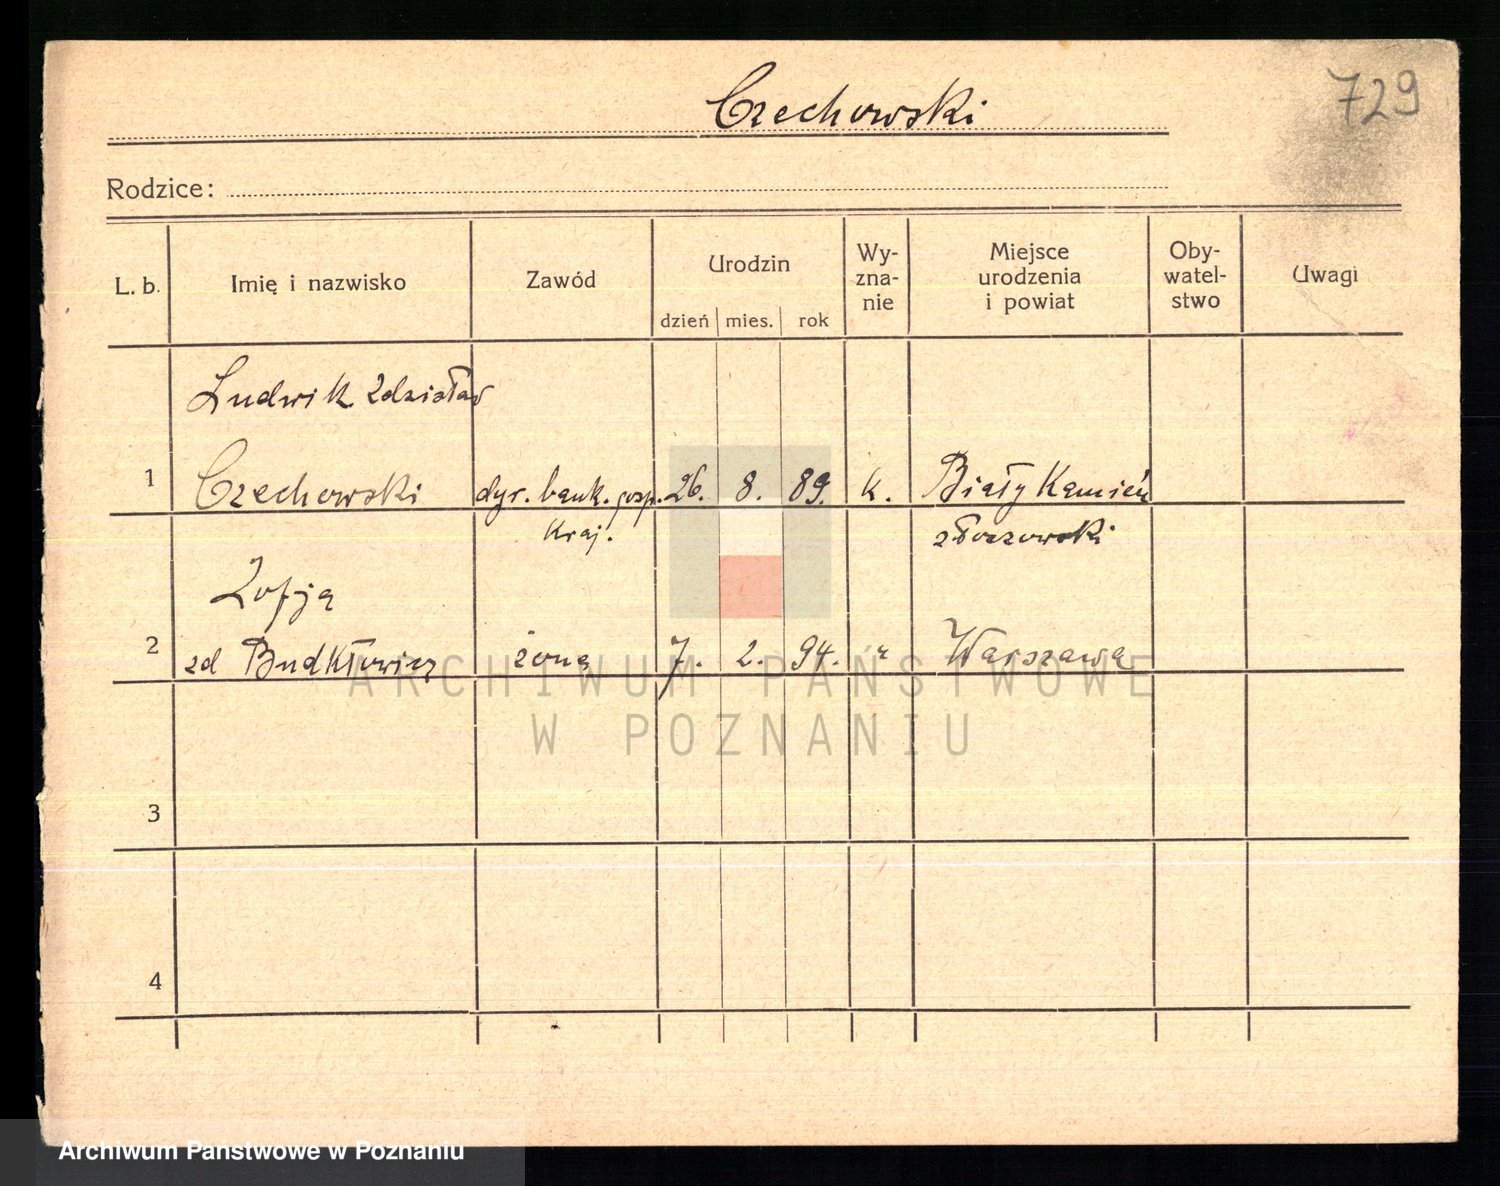 Czechowski
729
Rodzice:
L. b. Imię i nazwisko Zawód Urodzin Wy-zna-nie Miejsce urodzenia i powiat Oby-watel-stwo Uwagi
dzień mies. rok
Ludwik Zdzisław
1 Czechowski dyr. bank. gosp. 26. 8. 89. k. Biały Kamień
Kraj. złoczowski
Zofja
2 zd Budkłowicz żona 7. 2. 94. " Warszawa
ARCHIWUM PAŃSTWOWE
W POZNANIU
3
4
Archiwum Państwowe w Poznaniu